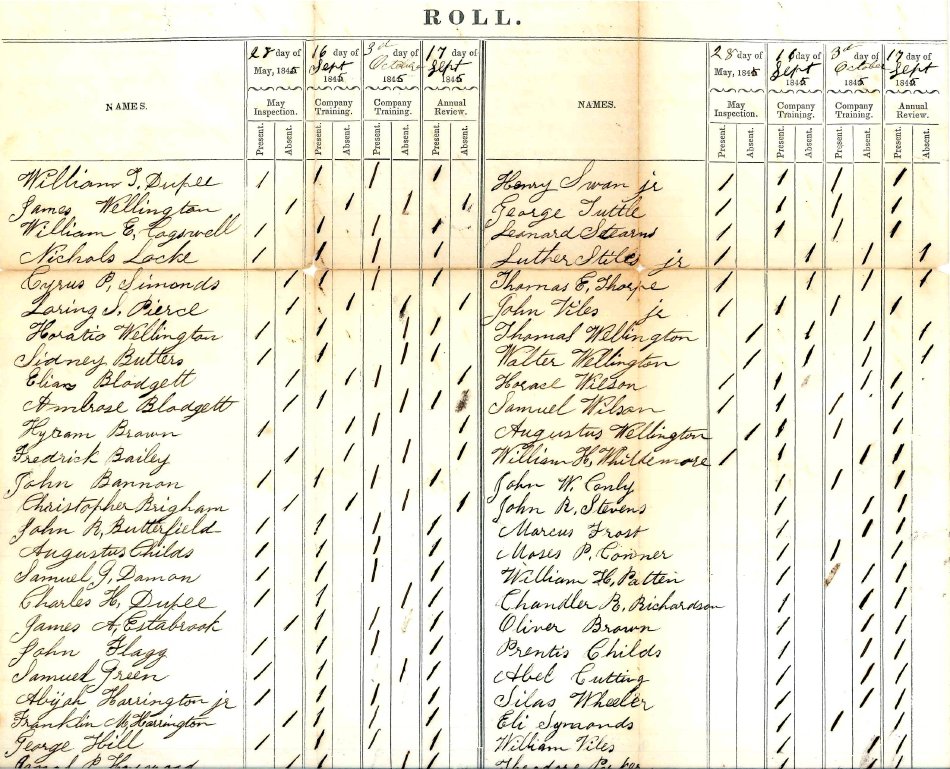 ROLL.
28 day of May, 1845 16 day of Sept 1845 3rd day of October 1845 17 day of Sept 1845
NAMES. May Inspection. Company Training. Company Training. Annual Review.
Present. Absent. Present. Absent. Present. Absent. Present. Absent.
William T. Dupee
James Wellington
William E. Cogswell
Nichols Locke
Cyrus P. Simonds
Loring S. Pierce
Horatio Wellington
Sidney Butters
Elias Blodgett
Ambrose Blodgett
Hyram Brown
Fredrick Bailey
John Bannon
Christopher Brigham
John R. Butterfield
Augustus Childs
Samuel G. Damon
Charles H. Dupee
James A. Estabrook
John Flagg
Samuel Green
Abijah Harrington jr
Franklin M. Harrington
George Hill
28 day of May, 1845 16 day of Sept 1845 3rd day of October 1845 17 day of Sept 1845
NAMES. May Inspection. Company Training. Company Training. Annual Review.
Present. Absent. Present. Absent. Present. Absent. Present. Absent.
Henry Swan jr
George Tuttle
Leonard Stearns
Luther Stiles jr
Thomas E. Thorpe
John Viles jr
Thomas Wellington
Walter Wellington
Horase Wilson
Samuel Wilson
Augustus Wellington
William H. Whildemore
John W. Conly
John R. Stevens
Marcus Frost
Moses P. Conner
William H. Patten
Chandler R. Richardson
Oliver Brown
Prentis Childs
Abel Cutting
Silas Wheeler
Eli Symonds
William Viles
Theodore